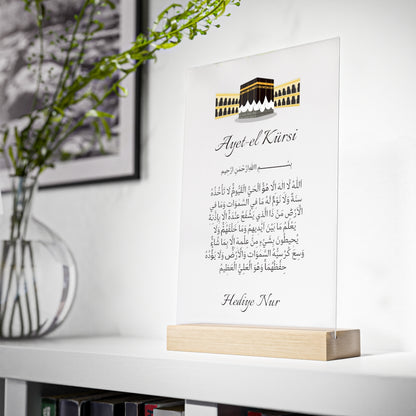 Ayet-el Kürsi
بِسْــــمِ اللهِ الرَّحْمٰنِ الرَّحِيمِ
اَللّٰهُ لَا اِلٰهَ اِلَّا هُوَ اَلْحَيُّ الْقَيُّومُ لَا تَأْخُذُهُ
سِنَةٌ وَلَا نَوْمٌ لَهُ مَا فِي السَّمٰوَاتِ وَمَا فِي
الْاَرْضِ مَنْ ذَا الَّذِي يَشْفَعُ عِنْدَهُ اِلَّا بِاِذْنِهِ
يَعْلَمُ مَا بَيْنَ اَيْدِيهِمْ وَمَا خَلْفَهُمْ وَلَا
يُحِيطُونَ بِشَيْءٍ مِنْ عِلْمِهِ اِلَّا بِمَا شَاءَ
وَسِعَ كُرْسِيُّهُ السَّمٰوَاتِ وَالْاَرْضَ وَلَا يَؤُدُهُ
حِفْظُهُمَا وَهُوَ الْعَلِيُّ الْعَظِيمُ
Hediye Nur